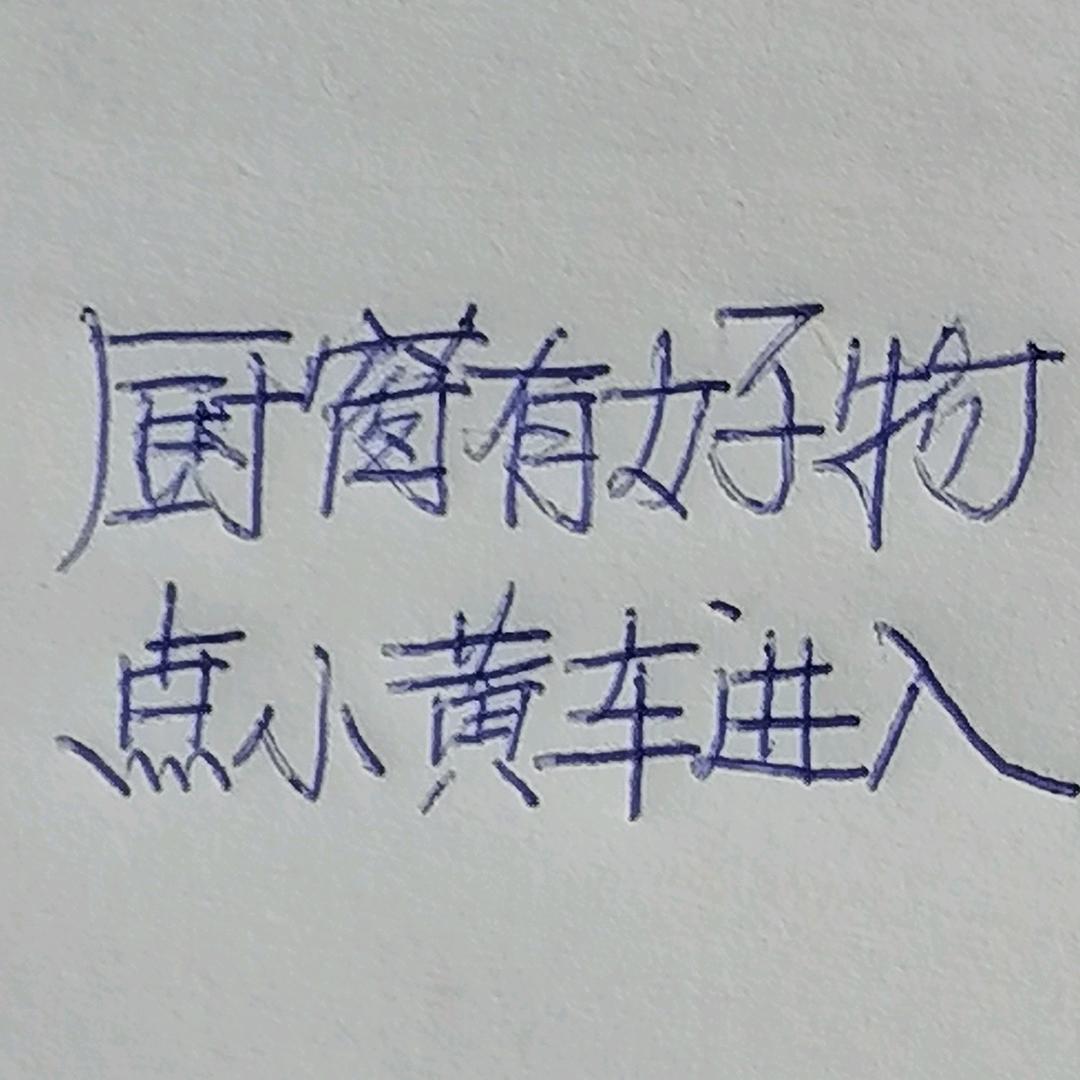 厨窗有好物
点小黄车进入